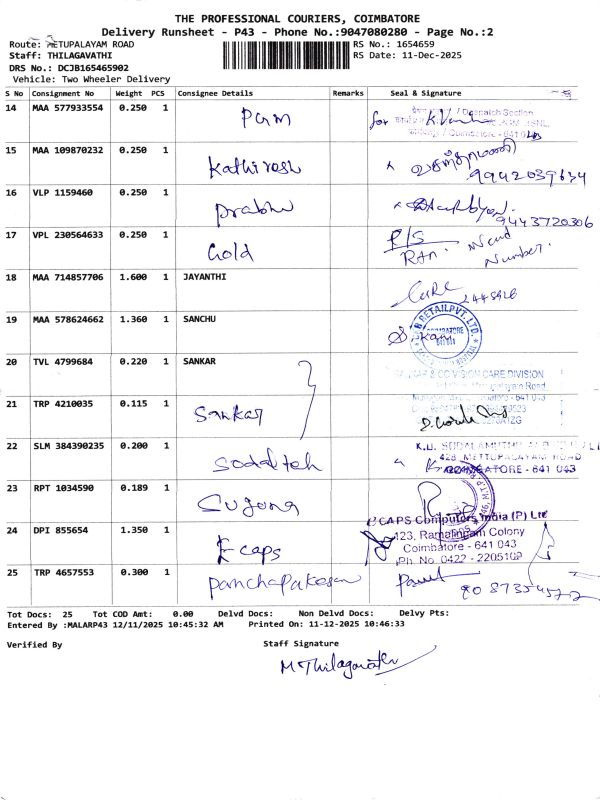 THE PROFESSIONAL COURIERS, COIMBATORE
Delivery Runsheet - P43 - Phone No.:9047080280 - Page No.:2
Route: METUPALAYAM ROAD RS No.: 1654659
Staff: THILAGAVATHI RS Date: 11-Dec-2025
DRS No.: DCJB165465902
Vehicle: Two Wheeler Delivery
S No Consignment No Weight PCS Consignee Details Remarks Seal & Signature
14 MAA 577933554 0.250 1 PGM for / Despatch Section
Coimbatore - 641 0
15 MAA 109870232 0.250 1 Kathiresh
9942039634
16 VLP 1159460 0.250 1 Prabhu
9443720306
17 VPL 230564633 0.250 1 Gold P/S
Rtn. Need Number.
18 MAA 714857706 1.600 1 JAYANTHI
CURE 2448926
19 MAA 578624662 1.360 1 SANCHU RETAIL PVT. LTD.
COIMBATORE
20 TVL 4799684 0.220 1 SANKAR
& CO VISION CARE DIVISION
21 TRP 4210035 0.115 1 Sankar
22 SLM 384390235 0.200 1 Sodalteh
428, METTUPALAYAM ROAD
COIMBATORE - 641 043
23 RPT 1034590 0.189 1 Suguna
24 DPI 855654 1.350 1 E caps eCAPS Computers India (P) Ltd
123, Ramalingam Colony
Coimbatore - 641 043
Ph. No. 0422 - 2205109
25 TRP 4657553 0.300 1 Panchapakesan
Tot Docs: 25 Tot COD Amt: 0.00 Delvd Docs: Non Delvd Docs: Delvy Pts:
Entered By :MALARP43 12/11/2025 10:45:32 AM Printed On: 11-12-2025 10:46:33
Verified By Staff Signature
M Thilagavathi